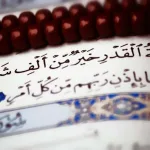 ةُ ٱلۡقَدۡرِ خَيۡرٞ مِّنۡ أَلۡفِ شَ
ا بِإِذۡنِ رَبِّهِم مِّن كُلِّ أَمۡرٖ